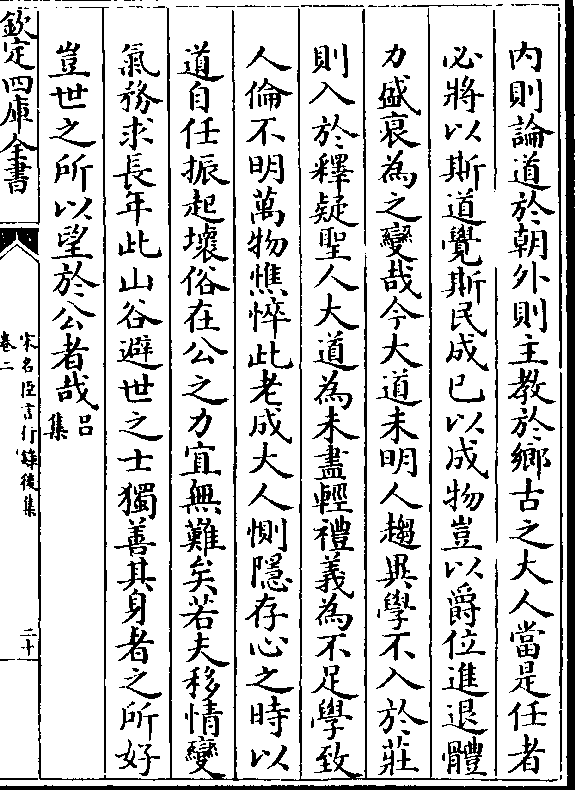 內則論道於朝外則主教於鄉古之大人當是任者
必將以斯道覺斯民成已以成物豈以爵位進退體
力盛衰為之變哉今大道未明人趨異學不入於莊
則入於釋疑聖人大道為未盡輕禮義為不足學致
人倫不明萬物憔悴此老成大人惻隱存心之時以
道自任振起壞俗在公之力宜無難矣若夫移情變
氣務求長年此山谷避世之士獨善其身者之所好
豈世之所以望於公者哉呂集
欽定四庫全書
宋名臣言行錄後集
卷二
二十